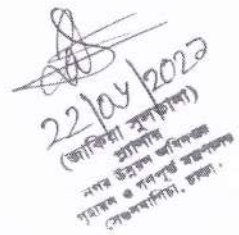 22/04/2022
(জাকিয়া সুলতানা)
প্ল্যানার
নগর উন্নয়ন অধিদপ্তর
গৃহায়ন ও গণপূর্ত মন্ত্রণালয়
সেগুনবাগিচা, ঢাকা।